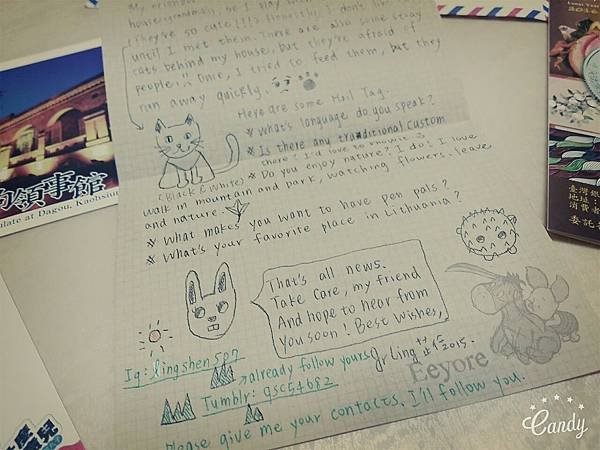 house(grandma's),
They're so cute!!!)
until I met them. There are also some stray
cats behind my house, but they're afraid of
people. Once, I tried to feed them, but they
ran away quickly.
Here are some Mail Tag.
What's language do you speak?
Is there any traditional custom
there? I'd love to know it.
(Black & White) Do you enjoy nature? I do! I love
walk in mountain and park, watching flowers, leave
and nature.
What makes you want to have pen pals?
What's your favorite place in Lithuania?
That's all news.
Take Care, my friend
And hope to hear from
you soon! Best Wishes,
Ling
2015.
Ig: lingshen507
already follow yours
Tumblr: gsc54682
Please give me your contacts. I'll follow you.
Eeyore
領事館
ulate at Dagou, Kaohsiu
2016
臺灣銀
地址:
消費者
委託
Candy